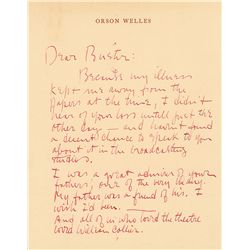 ORSON WELLES
Dear Buster:
Because my illness
kept me away from the
papers at the time, I didn't
hear of your loss until just the
other day — and haven't found
a decent chance to speak to you
about it in the broadcasting
studios.
I was a great admirer of your
father's; one of the very many.
My father was a friend of his. I
wish I'd been —
And all of us who loved the theatre
loved William Collier.